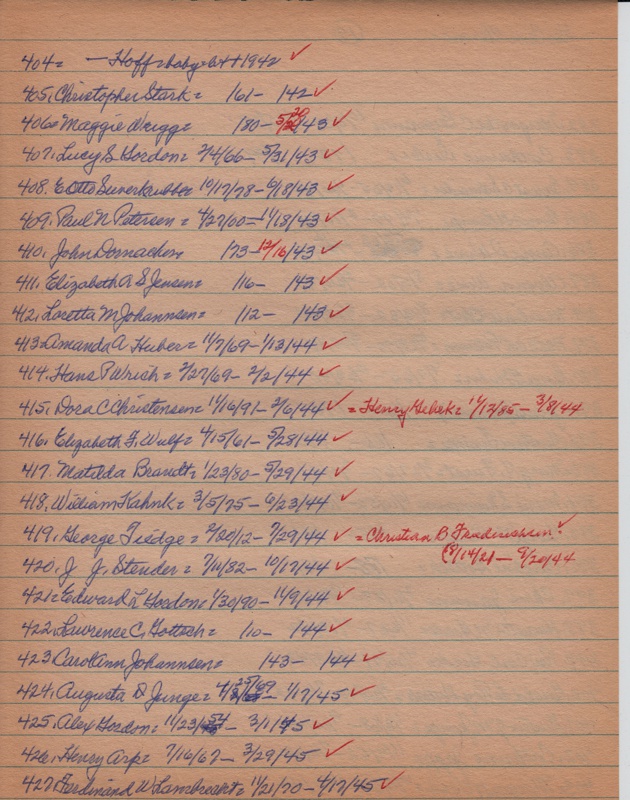 404= — Hoff=baby=b++1942 ✓
405, Christopher Stark= 161- 142 ✓
406= Maggie Wrigg= 180- 5/20/43 ✓
407, Lucy S Gordon= 2/4/66- 5/31/43 ✓
408. E Otto Suverkrubbe 10/17/78- 6/18/43 ✓
409, Paul N Petersen= 4/27/00- 11/18/43 ✓
410, John Dornachen 173- 12/16/43 ✓
411, Elizabeth A S Jensen= 116- 143 ✓
412, Loretta M Johannsen= 112- 143 ✓
413= Amanda A. Huber= 11/7/69- 1/13/44 ✓
414. Hans P Wrich= 2/27/69- 2/2/44 ✓
415, Dora C Christensen= 11/16/91- 2/6/44 ✓ = Henry = 11/12/85- 3/8/44
416, Elizabeth F, Wulf= 4/15/61- 5/28/44 ✓
417. Matilda Brandt= 1/23/80- 5/29/44 ✓
418, William Kahnk= 3/5/75- 6/23/44 ✓
419, George Tiedge= 2/20/12- 7/29/44 ✓ = Christian B ✓
/14/21- 9/20/44
420, J J, Stender= 7/11/82- 10/17/44 ✓
421= Edward L Gordon, 1/30/90- 11/9/44 ✓
422, Lawrence C, Gottsch= 110- 144 ✓
423 CarolAnn Johannsen= 143- 144 ✓
424, Augusta D Junge= 4/25/69- 1/17/45 ✓
425, Alex Gordon= 11/23/54- 3/1/45 ✓
426, Henry Arp= 7/16/67- 3/29/45 ✓
427, Ferdinand W Lambrecht= 11/21/70- 4/17/45 ✓